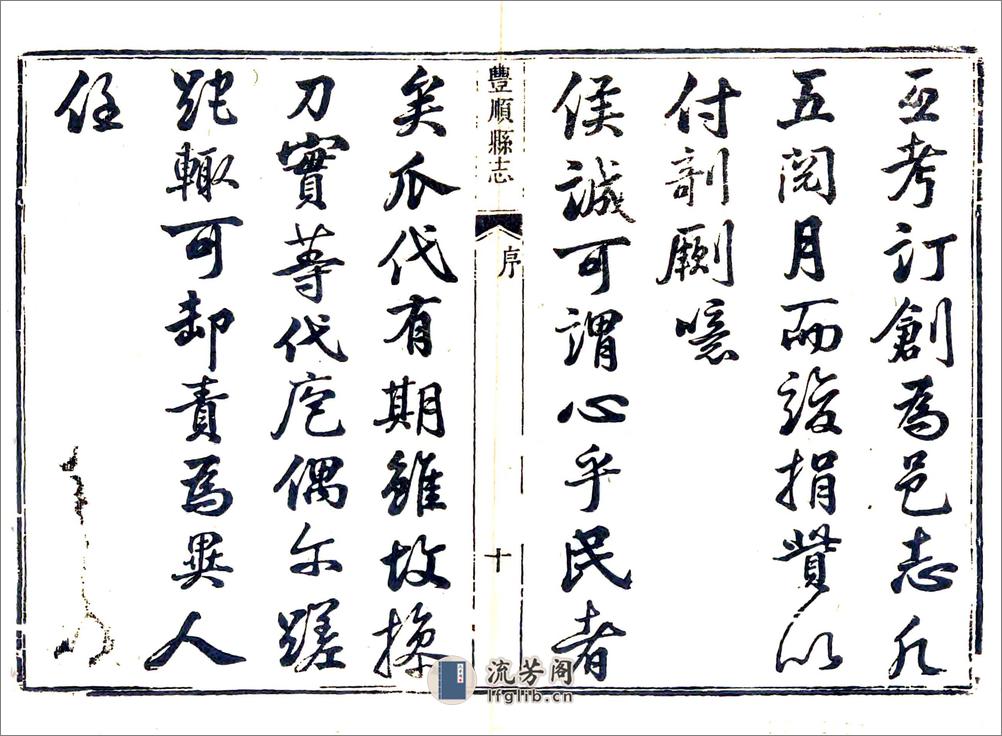 互考訂創為邑志凡
五閱月而竣捐貲以
付剞劂噫
侯誠可謂心乎民者
豐順縣志
序
十
矣瓜代有期雖故操
刀實等代庖偶尔蹉
跎輙可卸責為異人
任
流芳阁
lfglib.cn